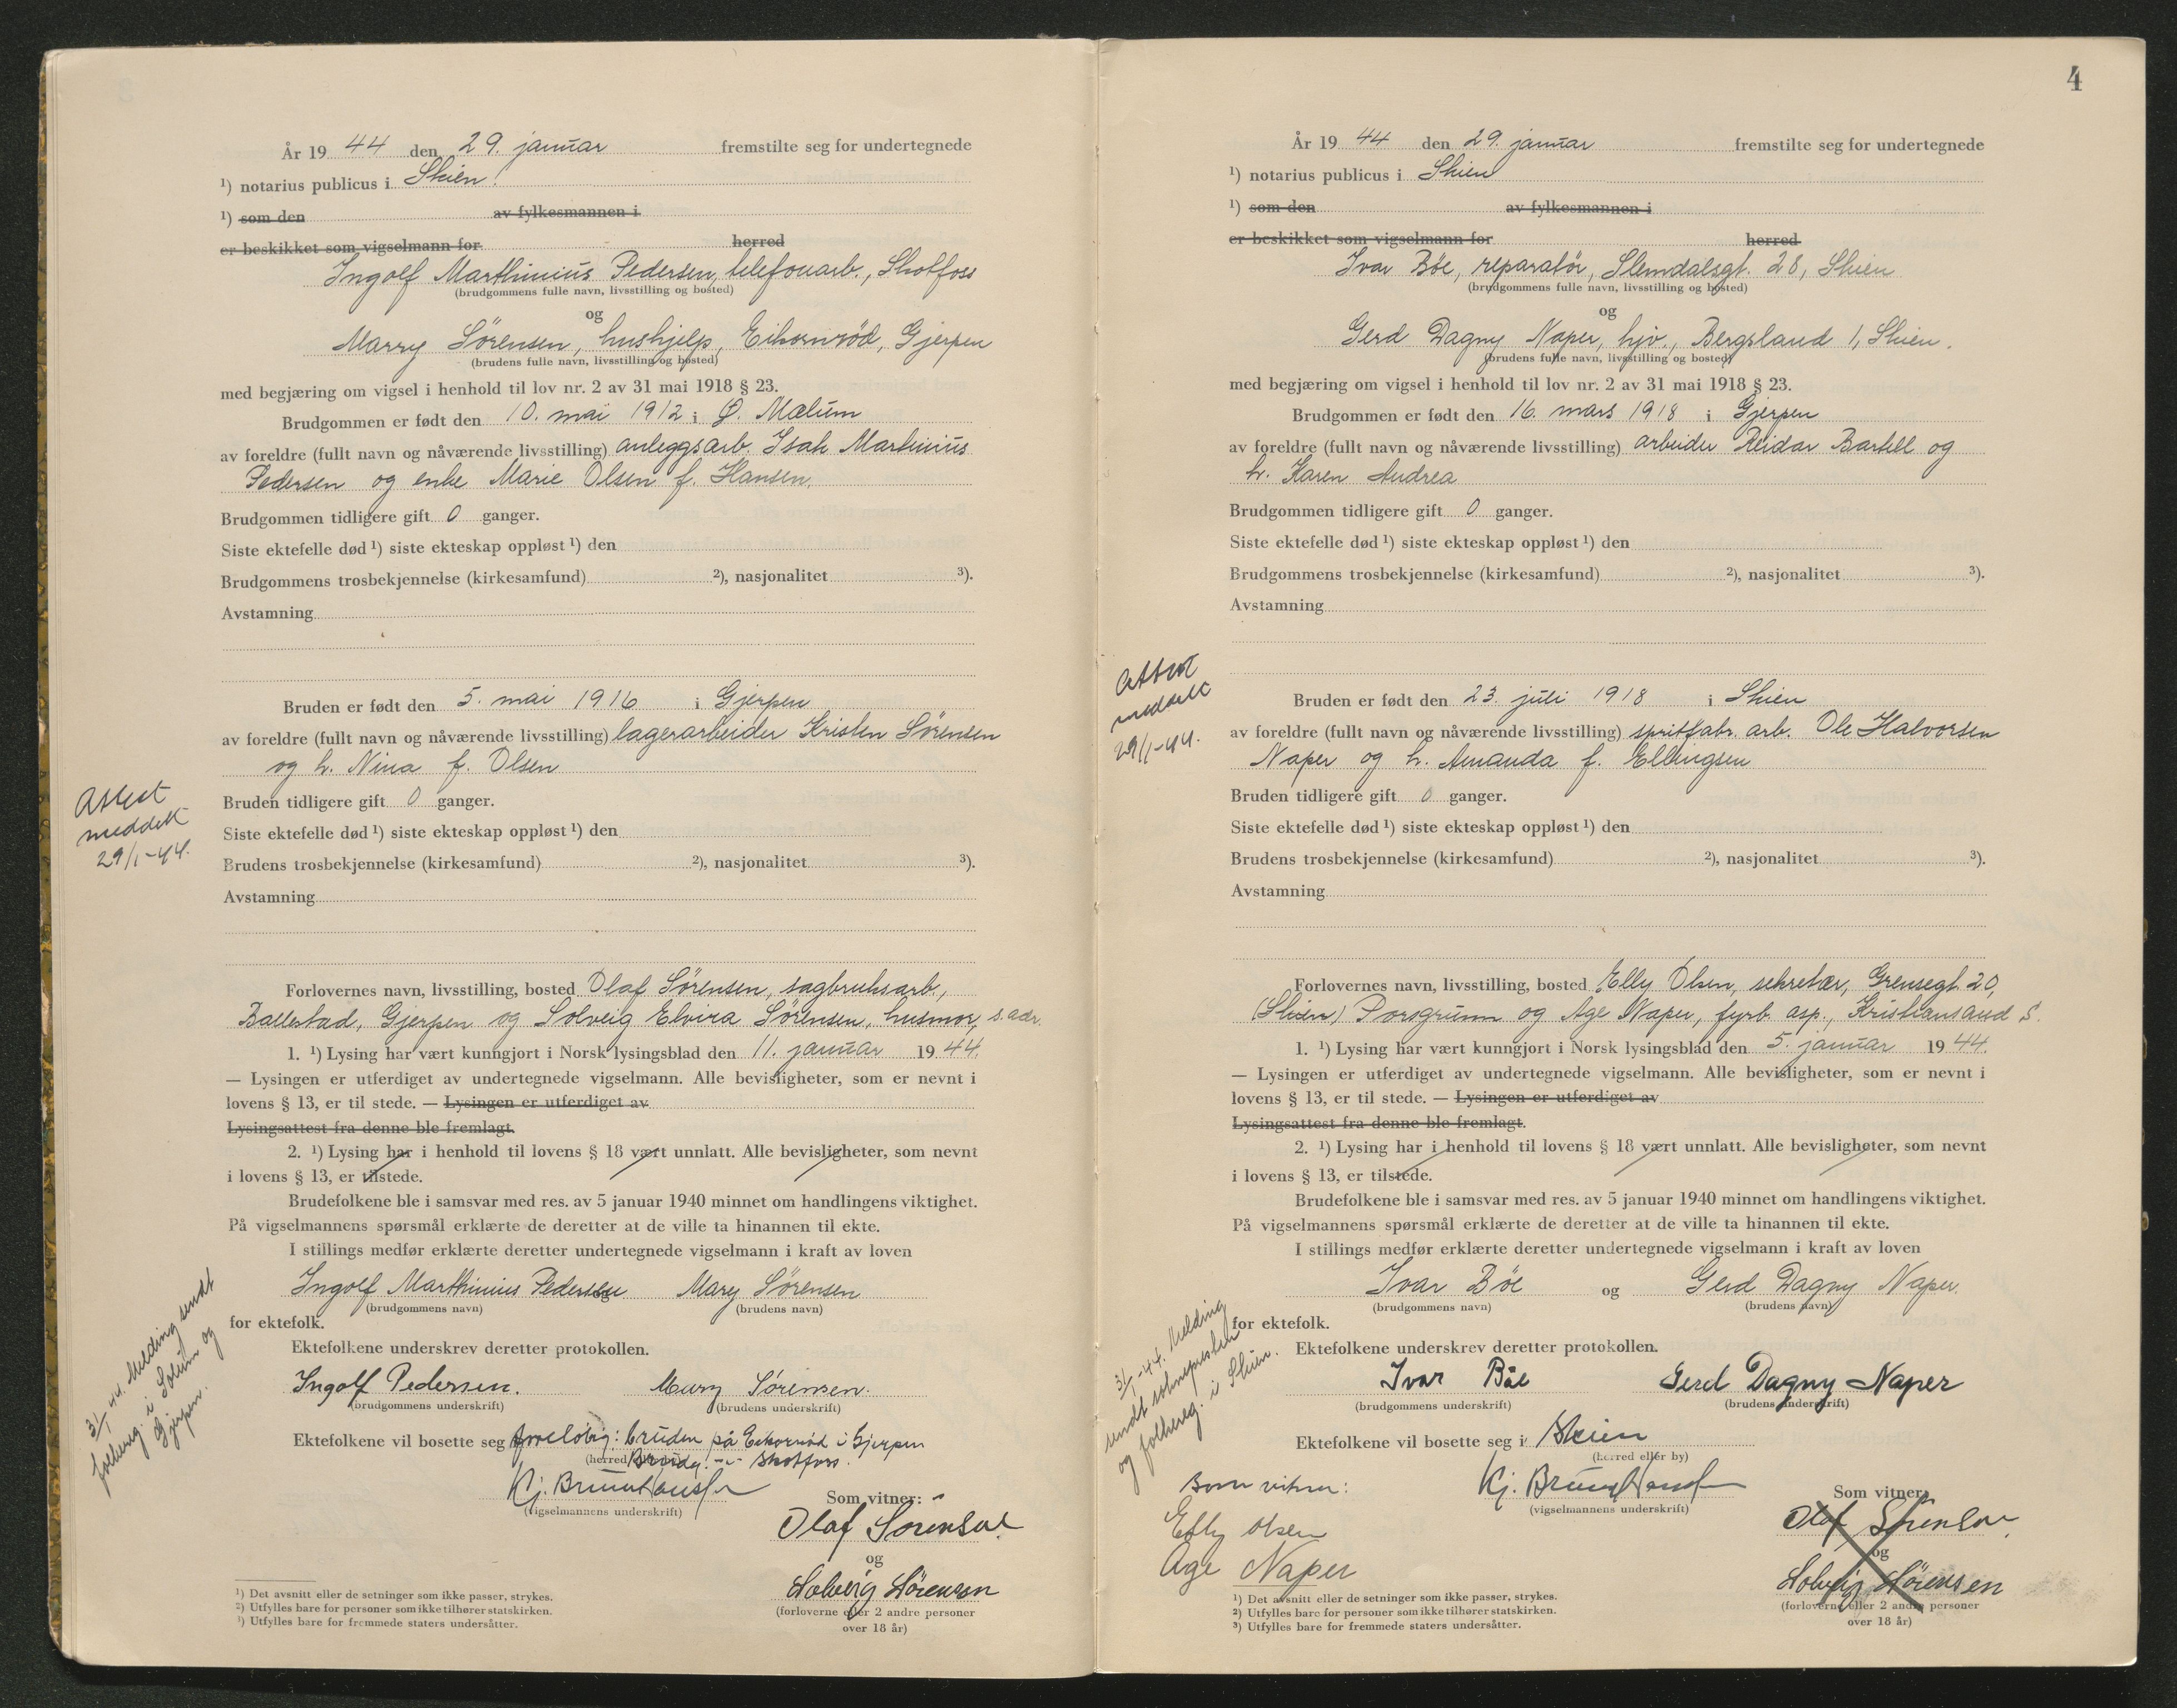 År 19 44 den 29. januar fremstilte seg for undertegnede
¹) notarius publicus i Skien.
¹) som den av fylkesmannen i
er beskikket som vigselmann for herred
Ingolf Marthinius Pedersen, telefonarb., Skotfoss
(brudgommens fulle navn, livsstilling og bosted)
og
Marry Sørensen, hushjelp, Eikornrød, Gjerpen
(brudens fulle navn, livsstilling og bosted)
med begjæring om vigsel i henhold til lov nr. 2 av 31 mai 1918 § 23.
Brudgommen er født den 10. mai 1912 i Ø. Mælum
av foreldre (fullt navn og nåværende livsstilling) anleggsarb. Isak Marthinius
Pedersen og enke Marie Olsen f. Hansen.
Brudgommen tidligere gift 0 ganger.
Siste ektefelle død ¹) siste ekteskap oppløst ¹) den
Brudgommens trosbekjennelse (kirkesamfund) ²), nasjonalitet ³).
Avstamning
Bruden er født den 5. mai 1916 i Gjerpen
av foreldre (fullt navn og nåværende livsstilling) lagerarbeider Kristen Sørensen
og h. Nina f. Olsen
Bruden tidligere gift 0 ganger.
Siste ektefelle død ¹) siste ekteskap oppløst ¹) den
Brudens trosbekjennelse (kirkesamfund) ²), nasjonalitet ³).
Avstamning
Attest
meddelt
29/1-44.
Forlovernes navn, livsstilling, bosted Olaf Sørensen, sagbruksarb.,
Ballestad, Gjerpen og Solveig Elvira Sørensen, husmor, s. adr.
1. ¹) Lysing har vært kunngjort i Norsk lysingsblad den 11. januar 19 44.
— Lysingen er utferdiget av undertegnede vigselmann. Alle bevisligheter, som er nevnt i
lovens § 13, er til stede. — Lysingen er utferdiget av
Lysingsattest fra denne ble fremlagt.
2. ¹) Lysing har i henhold til lovens § 18 vært unnlatt. Alle bevisligheter, som nevnt
i lovens § 13, er tilstede.
Brudefolkene ble i samsvar med res. av 5 januar 1940 minnet om handlingens viktighet.
På vigselmannens spørsmål erklærte de deretter at de ville ta hinannen til ekte.
I stillings medfør erklærte deretter undertegnede vigselmann i kraft av loven
Ingolf Marthinius Pedersen og Mary Sørensen
(brudgommens navn) (brudens navn)
for ektefolk.
Ektefolkene underskrev deretter protokollen.
Ingolf Pedersen. Mary Sørensen.
(brudgommens underskrift) (brudens underskrift)
Ektefolkene vil bosette seg foreløbig: bruden på Eikornrød i Gjerpen
Brudg. -"- Skotfoss.
Kj. Bruun Hansen
(vigselmannens underskrift)
Som vitner:
Olaf Sørensen.
og
Solveig Sørensen
(forloverne eller 2 andre personer
over 18 år)
31/1-44. Melding sendt
folkereg. i Solum og
Gjerpen.
¹) Det avsnitt eller de setninger som ikke passer, strykes.
²) Utfylles bare for personer som ikke tilhører statskirken.
³) Utfylles bare for fremmede staters undersåtter.
4
År 19 44 den 29. januar fremstilte seg for undertegnede
¹) notarius publicus i Skien
¹) som den av fylkesmannen i
er beskikket som vigselmann for herred
Ivar Bøe, reparatør, Slemdalsgt. 28, Skien
(brudgommens fulle navn, livsstilling og bosted)
og
Gerd Dagny Naper, hjv., Bergsland 1, Skien.
(brudens fulle navn, livsstilling og bosted)
med begjæring om vigsel i henhold til lov nr. 2 av 31 mai 1918 § 23.
Brudgommen er født den 16. mars 1918 i Gjerpen
av foreldre (fullt navn og nåværende livsstilling) arbeider Reidar Bartell og
h. Karen Andrea
Brudgommen tidligere gift 0 ganger.
Siste ektefelle død ¹) siste ekteskap oppløst ¹) den
Brudgommens trosbekjennelse (kirkesamfund) ²), nasjonalitet ³).
Avstamning
Attest
meddelt
29/1-44.
Bruden er født den 23. juli 1918 i Skien
av foreldre (fullt navn og nåværende livsstilling) spritfabr. arb. Ole Halvorsen
Naper og h. Amanda f. Ellingsen
Bruden tidligere gift 0 ganger.
Siste ektefelle død ¹) siste ekteskap oppløst ¹) den
Brudens trosbekjennelse (kirkesamfund) ²), nasjonalitet ³).
Avstamning
Forlovernes navn, livsstilling, bosted Elly Olsen, sekretær, Grensegt. 20,
(Skien) Porsgrunn og Age Naper, fyrb. asp., Kristiansand S.
1. ¹) Lysing har vært kunngjort i Norsk lysingsblad den 5. januar 19 44.
— Lysingen er utferdiget av undertegnede vigselmann. Alle bevisligheter, som er nevnt i
lovens § 13, er til stede. — Lysingen er utferdiget av
Lysingsattest fra denne ble fremlagt.
2. ¹) Lysing har i henhold til lovens § 18 vært unnlatt. Alle bevisligheter, som nevnt
i lovens § 13, er tilstede.
Brudefolkene ble i samsvar med res. av 5 januar 1940 minnet om handlingens viktighet.
På vigselmannens spørsmål erklærte de deretter at de ville ta hinannen til ekte.
I stillings medfør erklærte deretter undertegnede vigselmann i kraft av loven
Ivar Bøe og Gerd Dagny Naper.
(brudgommens navn) (brudens navn)
for ektefolk.
Ektefolkene underskrev deretter protokollen.
Ivar Bøe Gerd Dagny Naper
(brudgommens underskrift) (brudens underskrift)
Ektefolkene vil bosette seg i Skien
(herred eller by)
Kj. Bruun Hansen
(vigselmannens underskrift)
31/1-44. Melding
sendt soknepresten
og folkereg. i Skien.
Som vitner:
Elly Olsen
Age Naper
Som vitner:
Olaf Sørensen.
og
Solveig Sørensen
(forloverne eller 2 andre personer
over 18 år)
¹) Det avsnitt eller de setninger som ikke passer, strykes.
²) Utfylles bare for personer som ikke tilhører statskirken.
³) Utfylles bare for fremmede staters undersåtter.